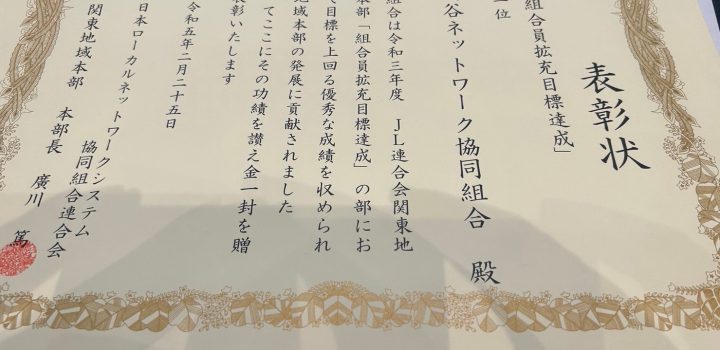 表彰状
組合員拡充目標達成」
位
谷ネットワーク協同組合 殿
組合は令和三年度 JL連合会関東地
本部「組合員拡充目標達成」の部にお
て目標を上回る優秀な成績を収められ
地域本部の発展に貢献されました
てここにその功績を讃え金一封を贈
表彰いたします
令和五年二月二十五日
日本ローカルネットワークシステム
協同組合連合会
関東地域本部 本部長 廣川 篤